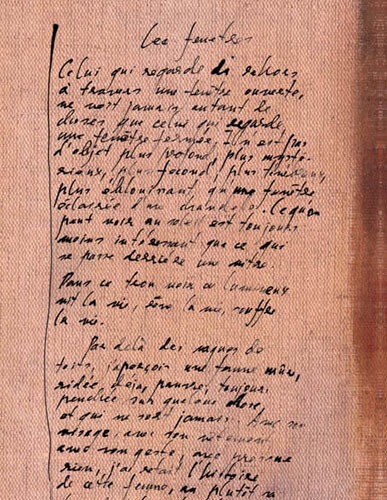 Les fenêtres
Celui qui regarde du dehors
à travers une fenêtre ouverte,
ne voit jamais autant de
choses que celui qui regarde
une fenêtre fermée. Il n'est pas
d'objet plus profond, plus mysté-
rieux, plus fécond, plus ténébreux,
plus éblouissant, qu'une fenêtre
éclairée d'une chandelle. Ce qu'on
peut voir au soleil est toujours
moins intéressant que ce qui
se passe derrière une vitre.
Dans ce trou noir ou lumineux
vit la vie, rêve la vie, souffre
la vie.
Par delà des vagues de
toits, j'aperçois une femme mûre,
ridée déjà, pauvre, toujours
penchée sur quelque chose,
et qui ne sort jamais. Avec son
visage, avec son vêtement,
avec son geste, avec presque
rien, j'ai refait l'histoire
de cette femme, ou plutôt